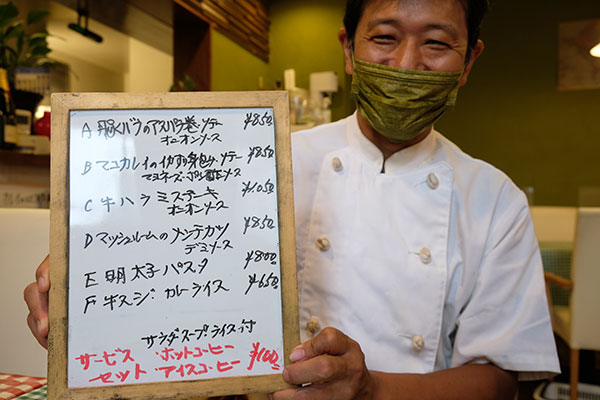 A 豚バラのアスパラ巻ソテー ¥850
オニオンソース
B マコカレイのイカすみ包みソテー ¥850
マヨネーズ・ポン酢ソース
C 牛ハラミステーキ ¥1050
オニオンソース
D マッシュルームのメンチカツ ¥850
デミソース
E 明太子パスタ ¥800
F 牛スジ カレーライス ¥650
サラダスープ・ライス付
サービス ・ホットコーヒー ¥100
セット ・アイスコーヒー